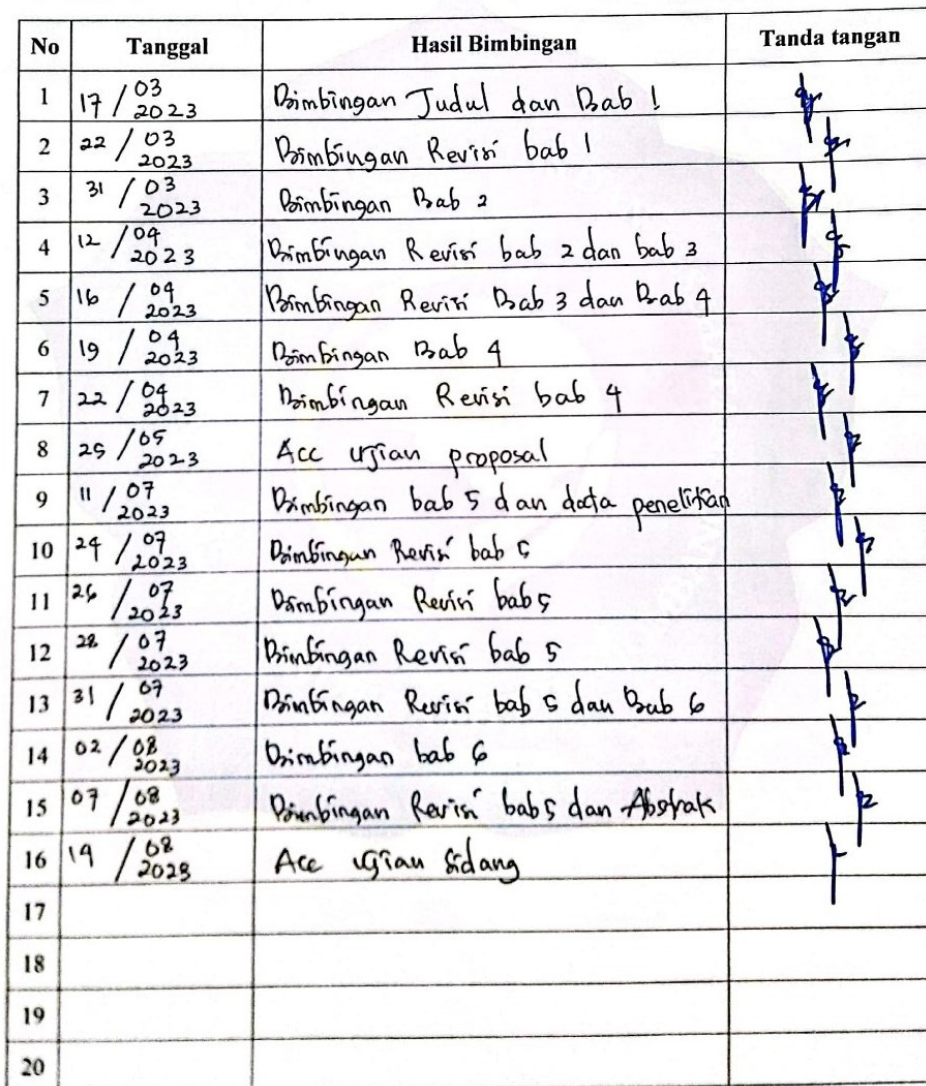 No Tanggal Hasil Bimbingan Tanda tangan
1 17/03 2023 Bimbingan Judul dan Bab 1
2 22/03 2023 Bimbingan Revisi bab 1
3 31/03 2023 Bimbingan Bab 2
4 12/04 2023 Bimbingan Revisi bab 2 dan bab 3
5 16/04 2023 Bimbingan Revisi Bab 3 dan Bab 4
6 19/04 2023 Bimbingan Bab 4
7 22/04 2023 Bimbingan Revisi bab 4
8 25/05 2023 Acc ujian proposal
9 11/07 2023 Bimbingan bab 5 dan data penelitian
10 24/07 2023 Bimbingan Revisi bab 5
11 26/07 2023 Bimbingan Revisi bab 5
12 28/07 2023 Bimbingan Revisi bab 5
13 31/07 2023 Bimbingan Revisi bab 5 dan Bab 6
14 02/08 2023 Bimbingan bab 6
15 07/08 2023 Bimbingan Revisi bab 5 dan Abstrak
16 /08 2023 Acc ujian Sidang
17
18
19
20